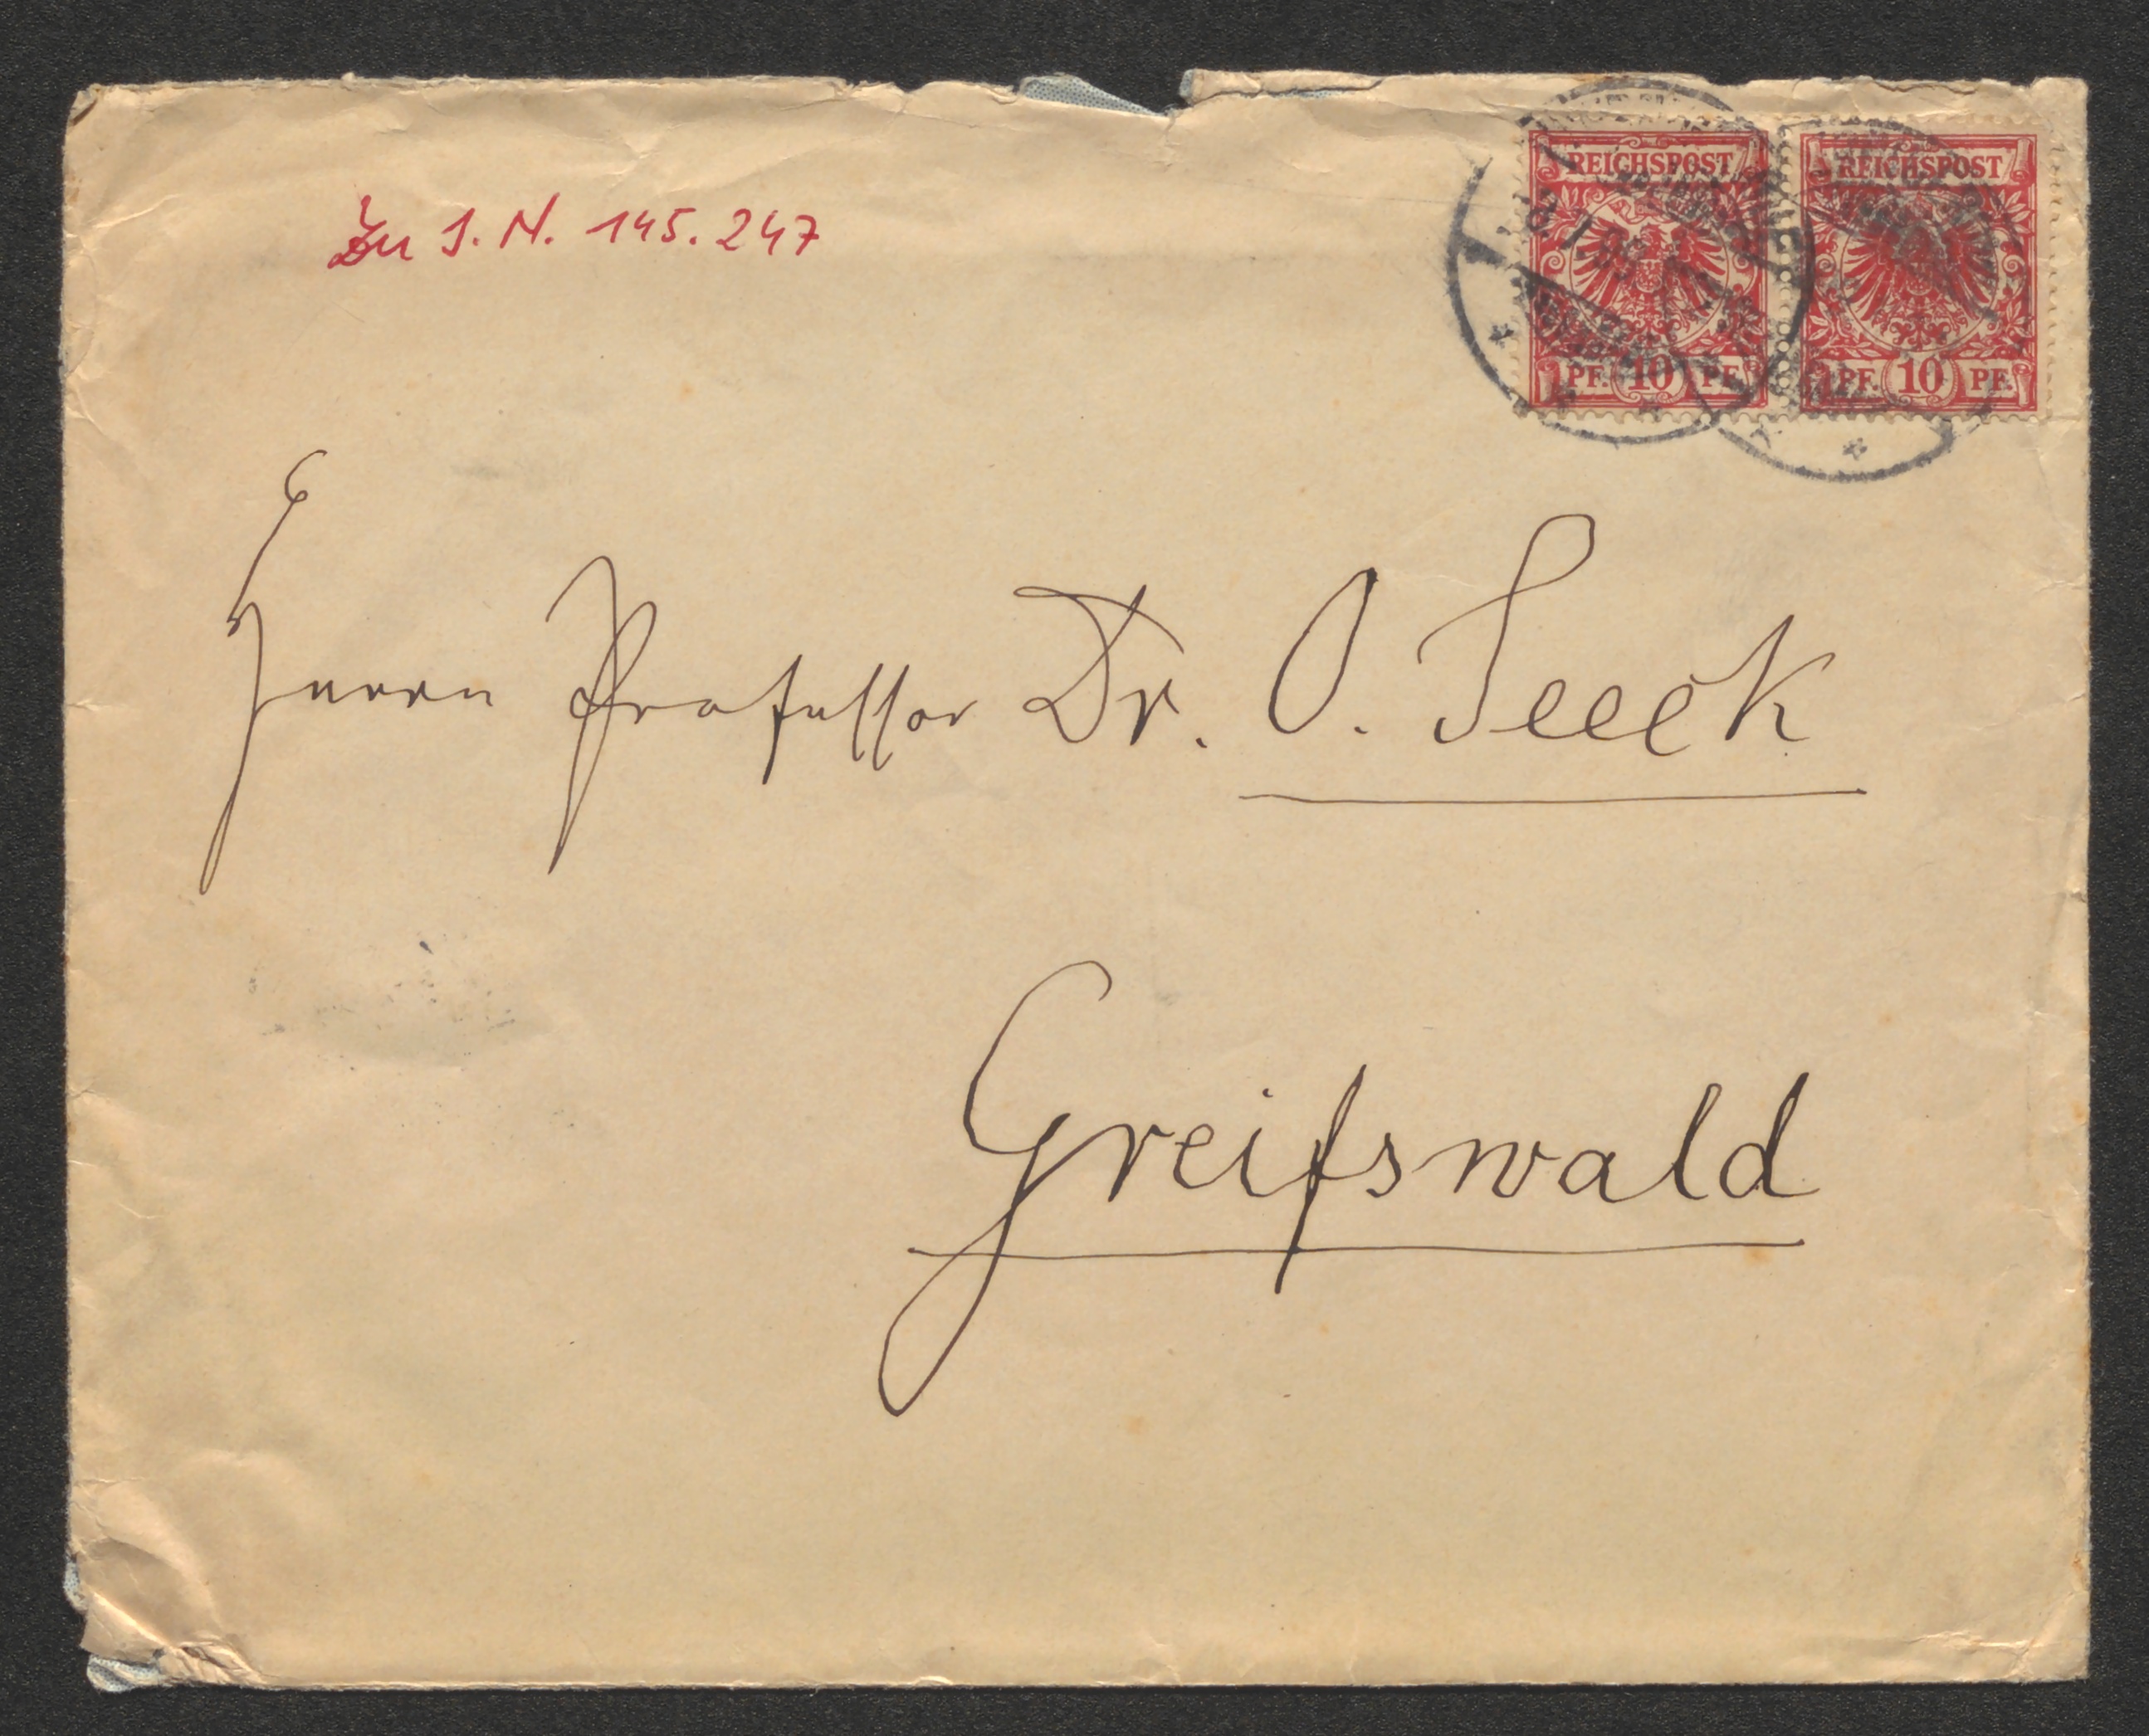 Zu I. N. 145.247
REICHSPOST REICHSPOST
PF. 10 PF. PF. 10 PF.
Herrn Professor Dr. O. Seeck
Greifswald